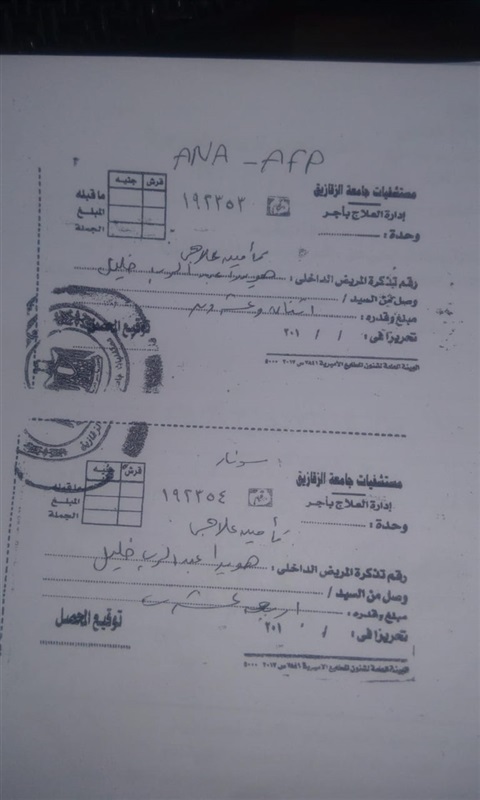 ANA - AFP
مستشفيات جامعة الزقازيق
إدارة العلاج بأجر
وحدة :
قرش جنيه
ما قبله
المبلغ
الجملة
رقم ١٩٢٣٥٣
تأمين علاجى
رقم تذكرة المريض الداخلى : هويدا عبد الرب خليل
وصل من السيد /
مبلغ وقدره : اثنان وعشرون
تحريرا فى : / / ٢٠١
توقيع المحصل
الهيئة العامة لشئون المطابع الأميرية ٢٨٤١ س ٢٠١٧ ٥٠٠٠
سونار
مستشفيات جامعة الزقازيق
إدارة العلاج بأجر
وحدة :
قرش جنيه
ما قبله
المبلغ
الجملة
رقم ١٩٢٣٥٤
تأمين علاجى
رقم تذكرة المريض الداخلى : هويدا عبد الرب خليل
وصل من السيد /
مبلغ وقدره : اربعة عشر
تحريرا فى : / / ٢٠١
توقيع المحصل
الهيئة العامة لشئون المطابع الأميرية ٢٨٤١ س ٢٠١٧ ٥٠٠٠